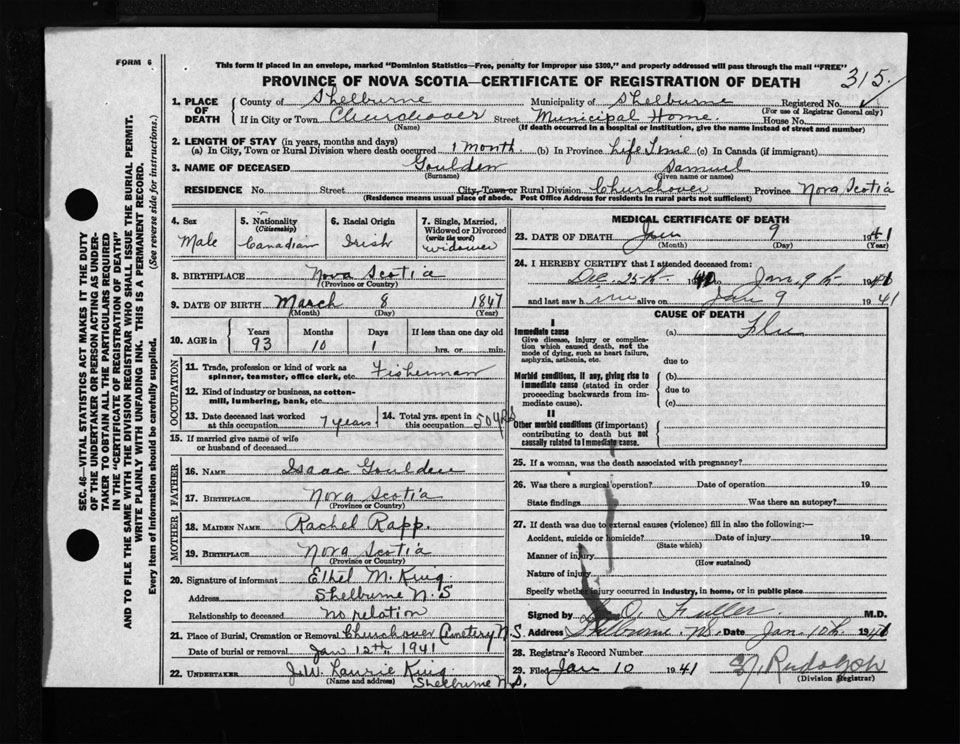 FORM 6
This form if placed in an envelope, marked "Dominion Statistics—Free, penalty for improper use $300," and properly addressed will pass through the mail "FREE"
PROVINCE OF NOVA SCOTIA—CERTIFICATE OF REGISTRATION OF DEATH
315.
1. PLACE OF DEATH County of Shelburne Municipality of Shelburne Registered No.
(For use of Registrar General only)
If in City or Town Churchover Street Municipal Home. House No.
(Name) (If death occurred in a hospital or institution, give the name instead of street and number)
2. LENGTH OF STAY (in years, months and days)
(a) In City, Town or Rural Division where death occurred 1 month (b) In Province Life Time (c) In Canada (if immigrant)
3. NAME OF DECEASED Goulden Samuel
(Surname) (Given name or names)
RESIDENCE No. Street City, Town or Rural Division Churchover Province Nova Scotia
(Residence means usual place of abode. Post Office Address for residents in rural parts not sufficient)
4. Sex
Male
5. Nationality
(Citizenship)
Canadian
6. Racial Origin
Irish
7. Single, Married,
Widowed or Divorced
(write the word)
widower
8. BIRTHPLACE Nova Scotia
(Province or Country)
9. DATE OF BIRTH March 8 1847
(Month) (Day) (Year)
10. AGE in Years Months Days If less than one day old
93 10 1 hrs. or min.
OCCUPATION
11. Trade, profession or kind of work as
spinner, teamster, office clerk, etc. Fisherman
12. Kind of industry or business, as cotton-
mill, lumbering, bank, etc.
13. Date deceased last worked
at this occupation 7 years
14. Total yrs. spent in
this occupation 50 yrs
15. If married give name of wife
or husband of deceased
FATHER
16. NAME Isaac Goulden
17. BIRTHPLACE Nova Scotia
(Province or Country)
MOTHER
18. MAIDEN NAME Rachel Rapp.
19. BIRTHPLACE Nova Scotia
(Province or Country)
20. Signature of informant Ethel M. King.
Address Shelburne N.S
Relationship to deceased no relation
21. Place of Burial, Cremation or Removal Churchover Cemetery N.S.
Date of burial or removal Jan 12th, 1941
22. UNDERTAKER Laurie King.
(Name and address) Shelburne N.S.
MEDICAL CERTIFICATE OF DEATH
23. DATE OF DEATH Jan 9 1941
(Month) (Day) (Year)
24. I HEREBY CERTIFY that I attended deceased from:
Dec. 25th 1940 to Jan 9th 1941
and last saw him alive on Jan 9 1941
CAUSE OF DEATH
I
Immediate cause
Give disease, injury or complica-
tion which caused death, not the
mode of dying, such as heart failure,
asphyxia, asthenia, etc.
(a) Flu
due to
Morbid conditions, if any, giving rise to
immediate cause (stated in order
proceeding backwards from im-
mediate cause).
(b)
due to
(c)
II
Other morbid conditions (if important)
contributing to death but not
causally related to immediate cause.
25. If a woman, was the death associated with pregnancy?
26. Was there a surgical operation? Date of operation 19
State findings Was there an autopsy?
27. If death was due to external causes (violence) fill in also the following:—
Accident, suicide or homicide? Date of injury 19
(State which)
Manner of injury
(How sustained)
Nature of injury
Specify whether injury occurred in industry, in home, or in public place
Signed by O. Fuller M.D.
Address Shelburne. NS Date Jan. 10th 1941
28. Registrar's Record Number
29. Filed Jan 10 1941 Rudolph
(Division Registrar)
SEC. 46—VITAL STATISTICS ACT MAKES IT THE DUTY
OF THE UNDERTAKER OR PERSON ACTING AS UNDER-
TAKER TO OBTAIN ALL THE PARTICULARS REQUIRED
IN THE "CERTIFICATE OF REGISTRATION OF DEATH"
AND TO FILE THE SAME WITH THE DIVISION REGISTRAR WHO SHALL ISSUE THE BURIAL PERMIT.
WRITE PLAINLY WITH UNFADING INK. THIS IS A PERMANENT RECORD.
Every item of information should be carefully supplied. (See reverse side for instructions.)